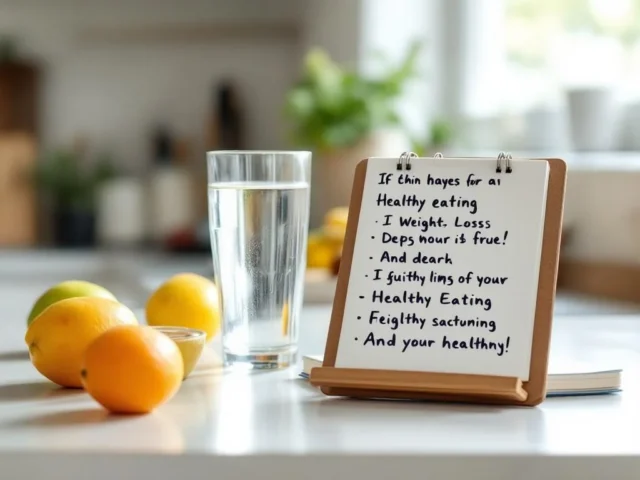 If thin hayes for ai
Healthy eating
· I Weight. Losss
· Deps nour is frue!
· And dearh
· I fuithy lims of your
- Healthy Eating
· Feiglthy sactuning
· And your healthny!